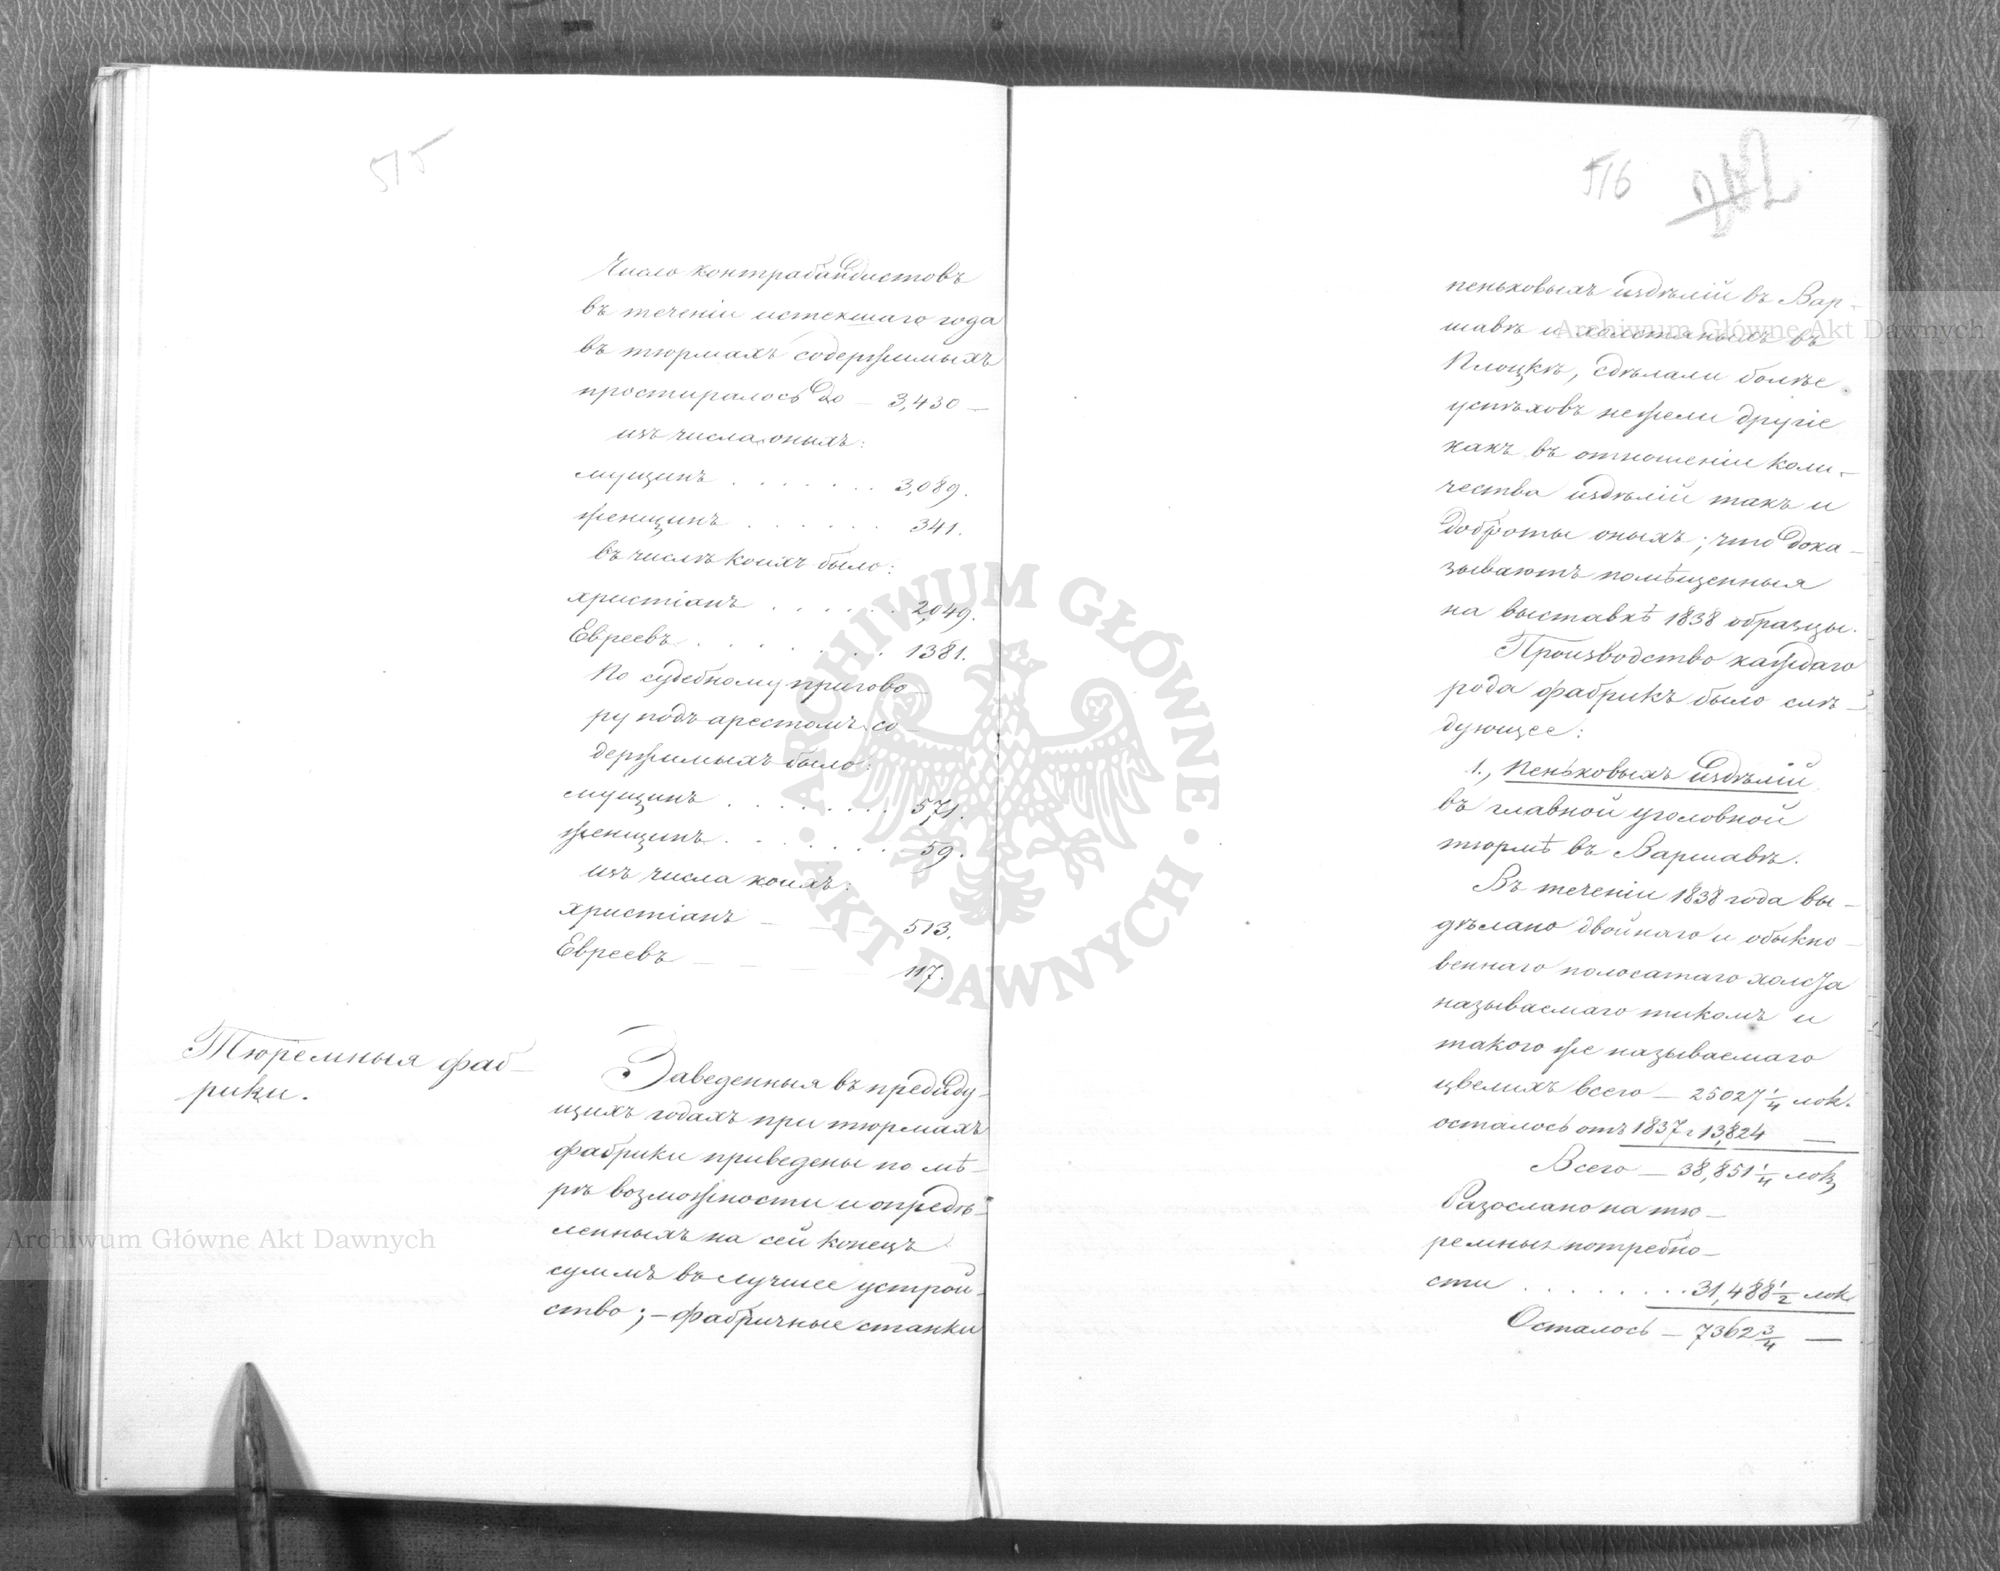 515
Число контрабандистовъ
въ теченіи истекшаго года
въ тюрмахъ содержимыхъ
простиралось до — 3,430 —
изъ числа оныхъ:
мущинъ . . . . . . . 3,089.
женщинъ . . . . . . 341.
въ числѣ коихъ было:
христіанъ . . . . . . 2,049.
Евреевъ . . . . . . . 1381.
По судебному пригово-
ру подъ арестомъ со-
держимыхъ было:
мущинъ . . . . . . . . 571.
женщинъ . . . . . . . 59.
изъ числа коихъ:
христіанъ — — — 513.
Евреевъ — — — 117.
Тюремныя фаб-
рики.
Заведенныя въ предиду-
щихъ годахъ при тюрмахъ
фабрики приведены по мѣ-
рѣ возможности и опредѣ-
ленныхъ на сей конецъ
суммъ въ лучшее устрой-
ство; — фабричные станки
516
пеньковыхъ издѣлій въ Вар-
шавѣ и холстяныхъ въ
Плоцкѣ, сдѣлали болѣе
успѣховъ нежели другіе
какъ въ отношеніи коли-
чества издѣлій такъ и
доброты оныхъ; что дока-
зываютъ помѣщенныя
на выставкѣ 1838 образцы.
Производство каждаго
рода фабрикъ было слѣ-
дующее:
1., Пеньковыхъ издѣлій
въ главной уголовной
тюрмѣ въ Варшавѣ.
Въ теченіи 1838 года вы-
дѣлано двойнаго и обыкно-
веннаго полосатаго холста
называемаго тикомъ и
такого же называемаго
цвелихъ всего — 25027 1/4 лок.
осталось отъ 1837 г 13,824 —
Всего — 38,851 1/4 лок
Разослано на тю-
ремныя потребно-
сти . . . . . . . . 31,488 1/2 лок
Осталось — 7362 3/4 —
Archiwum Główne Akt Dawnych
Archiwum Główne Akt Dawnych
ARCHIWUM GŁÓWNE · AKT DAWNYCH ·